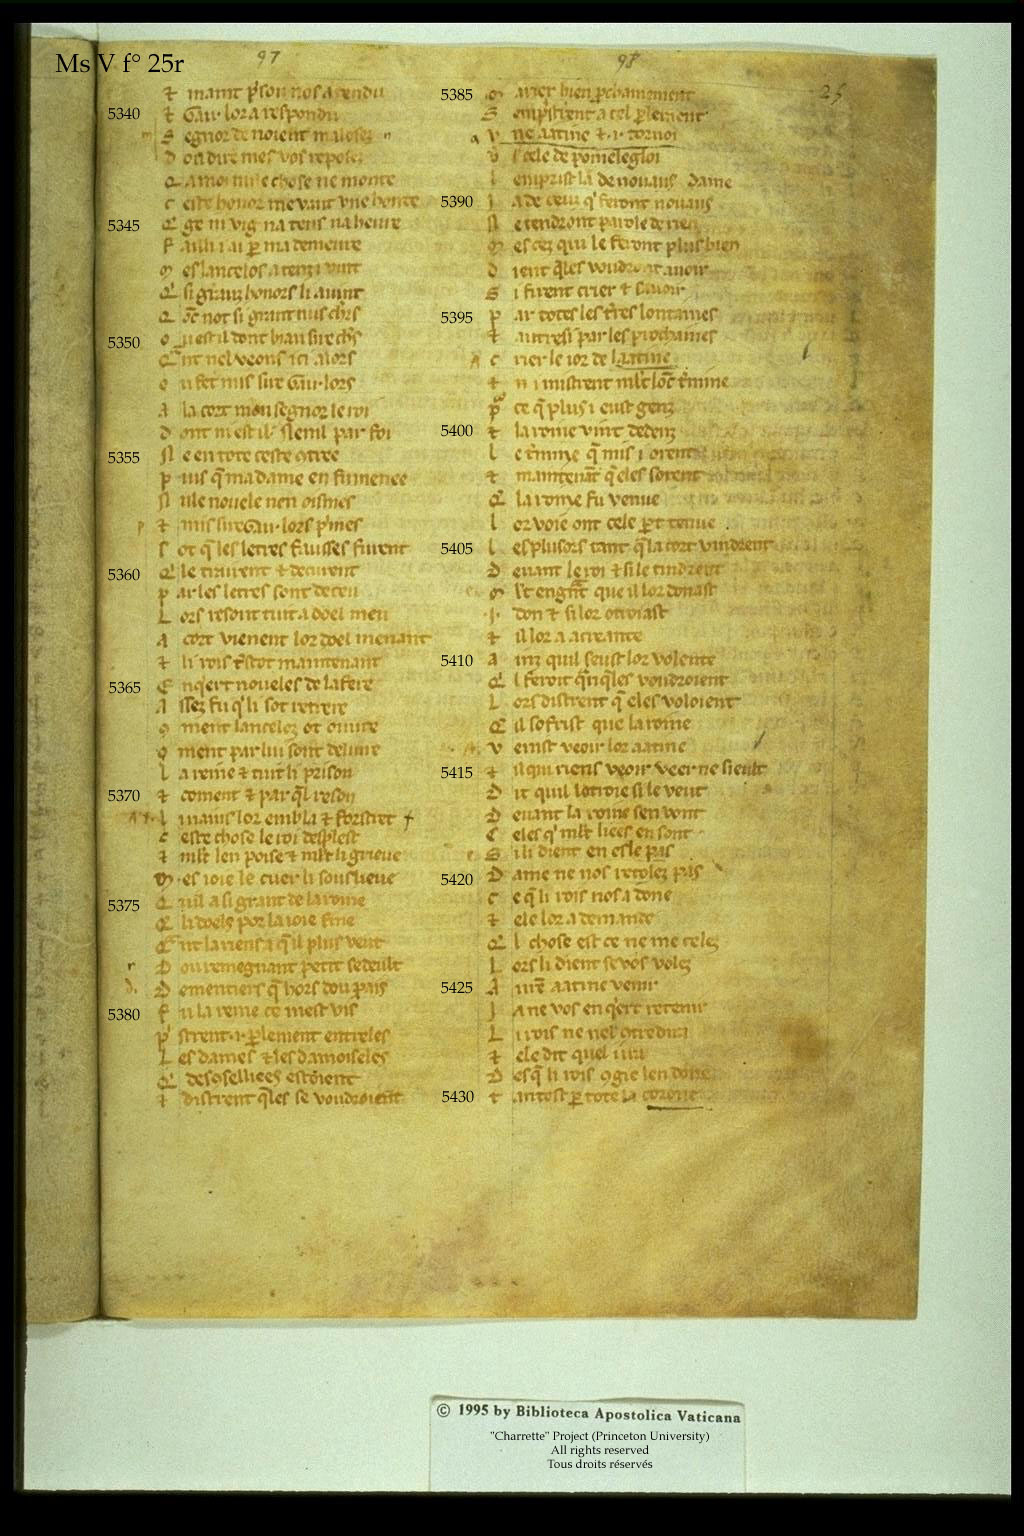 Ms V f° 25r
97
98
25
& maint p'son nos a rendu
5340
& Gau· lor a respondu
S egnor de noient m alosez
D on dire mes vos reposez
c este honor me vaut une honte
5345
f ailli i ai p ma demeure
m es lancelos a tenz i vint
Q' si granz honors li avint
Q' onc not si grant nus chrs
5350
o u est il dont biau sire chrs
Q' nt nel veons ici alors
o u fet mis sire Gau· lors
A la cort mon segnor le roi
D ont n est il
par foi
5355
N e en tote ceste
p uis q ma dame en fu menee
N ule novele nen oismes
& mis sire Gau· lors p'mes
s ot q les letres fausses furent
5360
Q' le
& decurent
p ar les letres sont deceu
L ors resont tuit a doel meu
A cort vienent lor doel menant
& li rois
maintenant
5365
E nq'ert noveles de lafere
A ssez fu q' li sot retrere
9 ment lancelez ot ouvre
9 ment par lui sont delivre
L a reine & tuit li prison
5370
& coment & par
l i nains lor embla & forstret
c este chose le roi desplest
& mlt len poise & mlt li grieve
m es ioie le cuer li souslieve
5375
Q' uil a si grant de la roine
Q' li doels por la ioie fine
Q' nt la riens a q il plus veut
D ou remegnant petit se deult
D ementiers q hors dou pais
5380
F u la reine ce mest vis
p' strent ·i· plement entreles
L es dames & les damoiseles
Q' des9sellies estoient
& distrent qles se voudroient
5385
m arier bien prchainement
S empristrent a cel plement
v ne aatine & ·i· tornoi
v s cele de pomelegloi
l emprist la de novaus dame
5390
I a de ceus q' feront novaus
N e tendront parole de rien
m es cez qui le feront plus bien
D ient qles voudront avoir
S i firent crier & savoir
5395
p ar totes les tres lontaines
& autresi par les prochaines
c rier le ior de laatine
& n i mistrent mlt lonc tmine
p' ce q plus i eust genz
5400
& la roine vint dedenz
l e tmine q mis i orent
& maintenant q eles sorent
Q' la roine fu venue
l or voie ont cele pt tenue
5405
l es plusors tant q la cort vindrent
D evant le roi & si le tindrent
que il lor donast
·i· don & si lor otroiast
& il lor a acreante
5410
a inz quil seust lor volente
Q' l feroit qnqles voudroient
L ors distrent q eles voloient
Q' il sofrist que la roine
v enist veoir lor aatine
5415
& il qui riens veoir veer ne sieult
D it quil lotroie si le veut
D evant la roine sen vont
C eles q' mlt liees en sont
S i li dient en esle pas
5420
D ame ne nos retolez pas
c e q li rois nos a done
& ele lor a demande
Q' l chose est ce ne me celez
L ors li dient se vos volez
5425
A nre aatine venir
I a ne vos en q'ert retenir
L i rois ne nel 9tredira
& ele dit quel i ira
D es q li rois 9gie len done
5430
t antost p tote la corone
© 1995 by Biblioteca Apostolica Vaticana
"Charrette" Project (Princeton University)
All rights reserved
Tous droits réservés